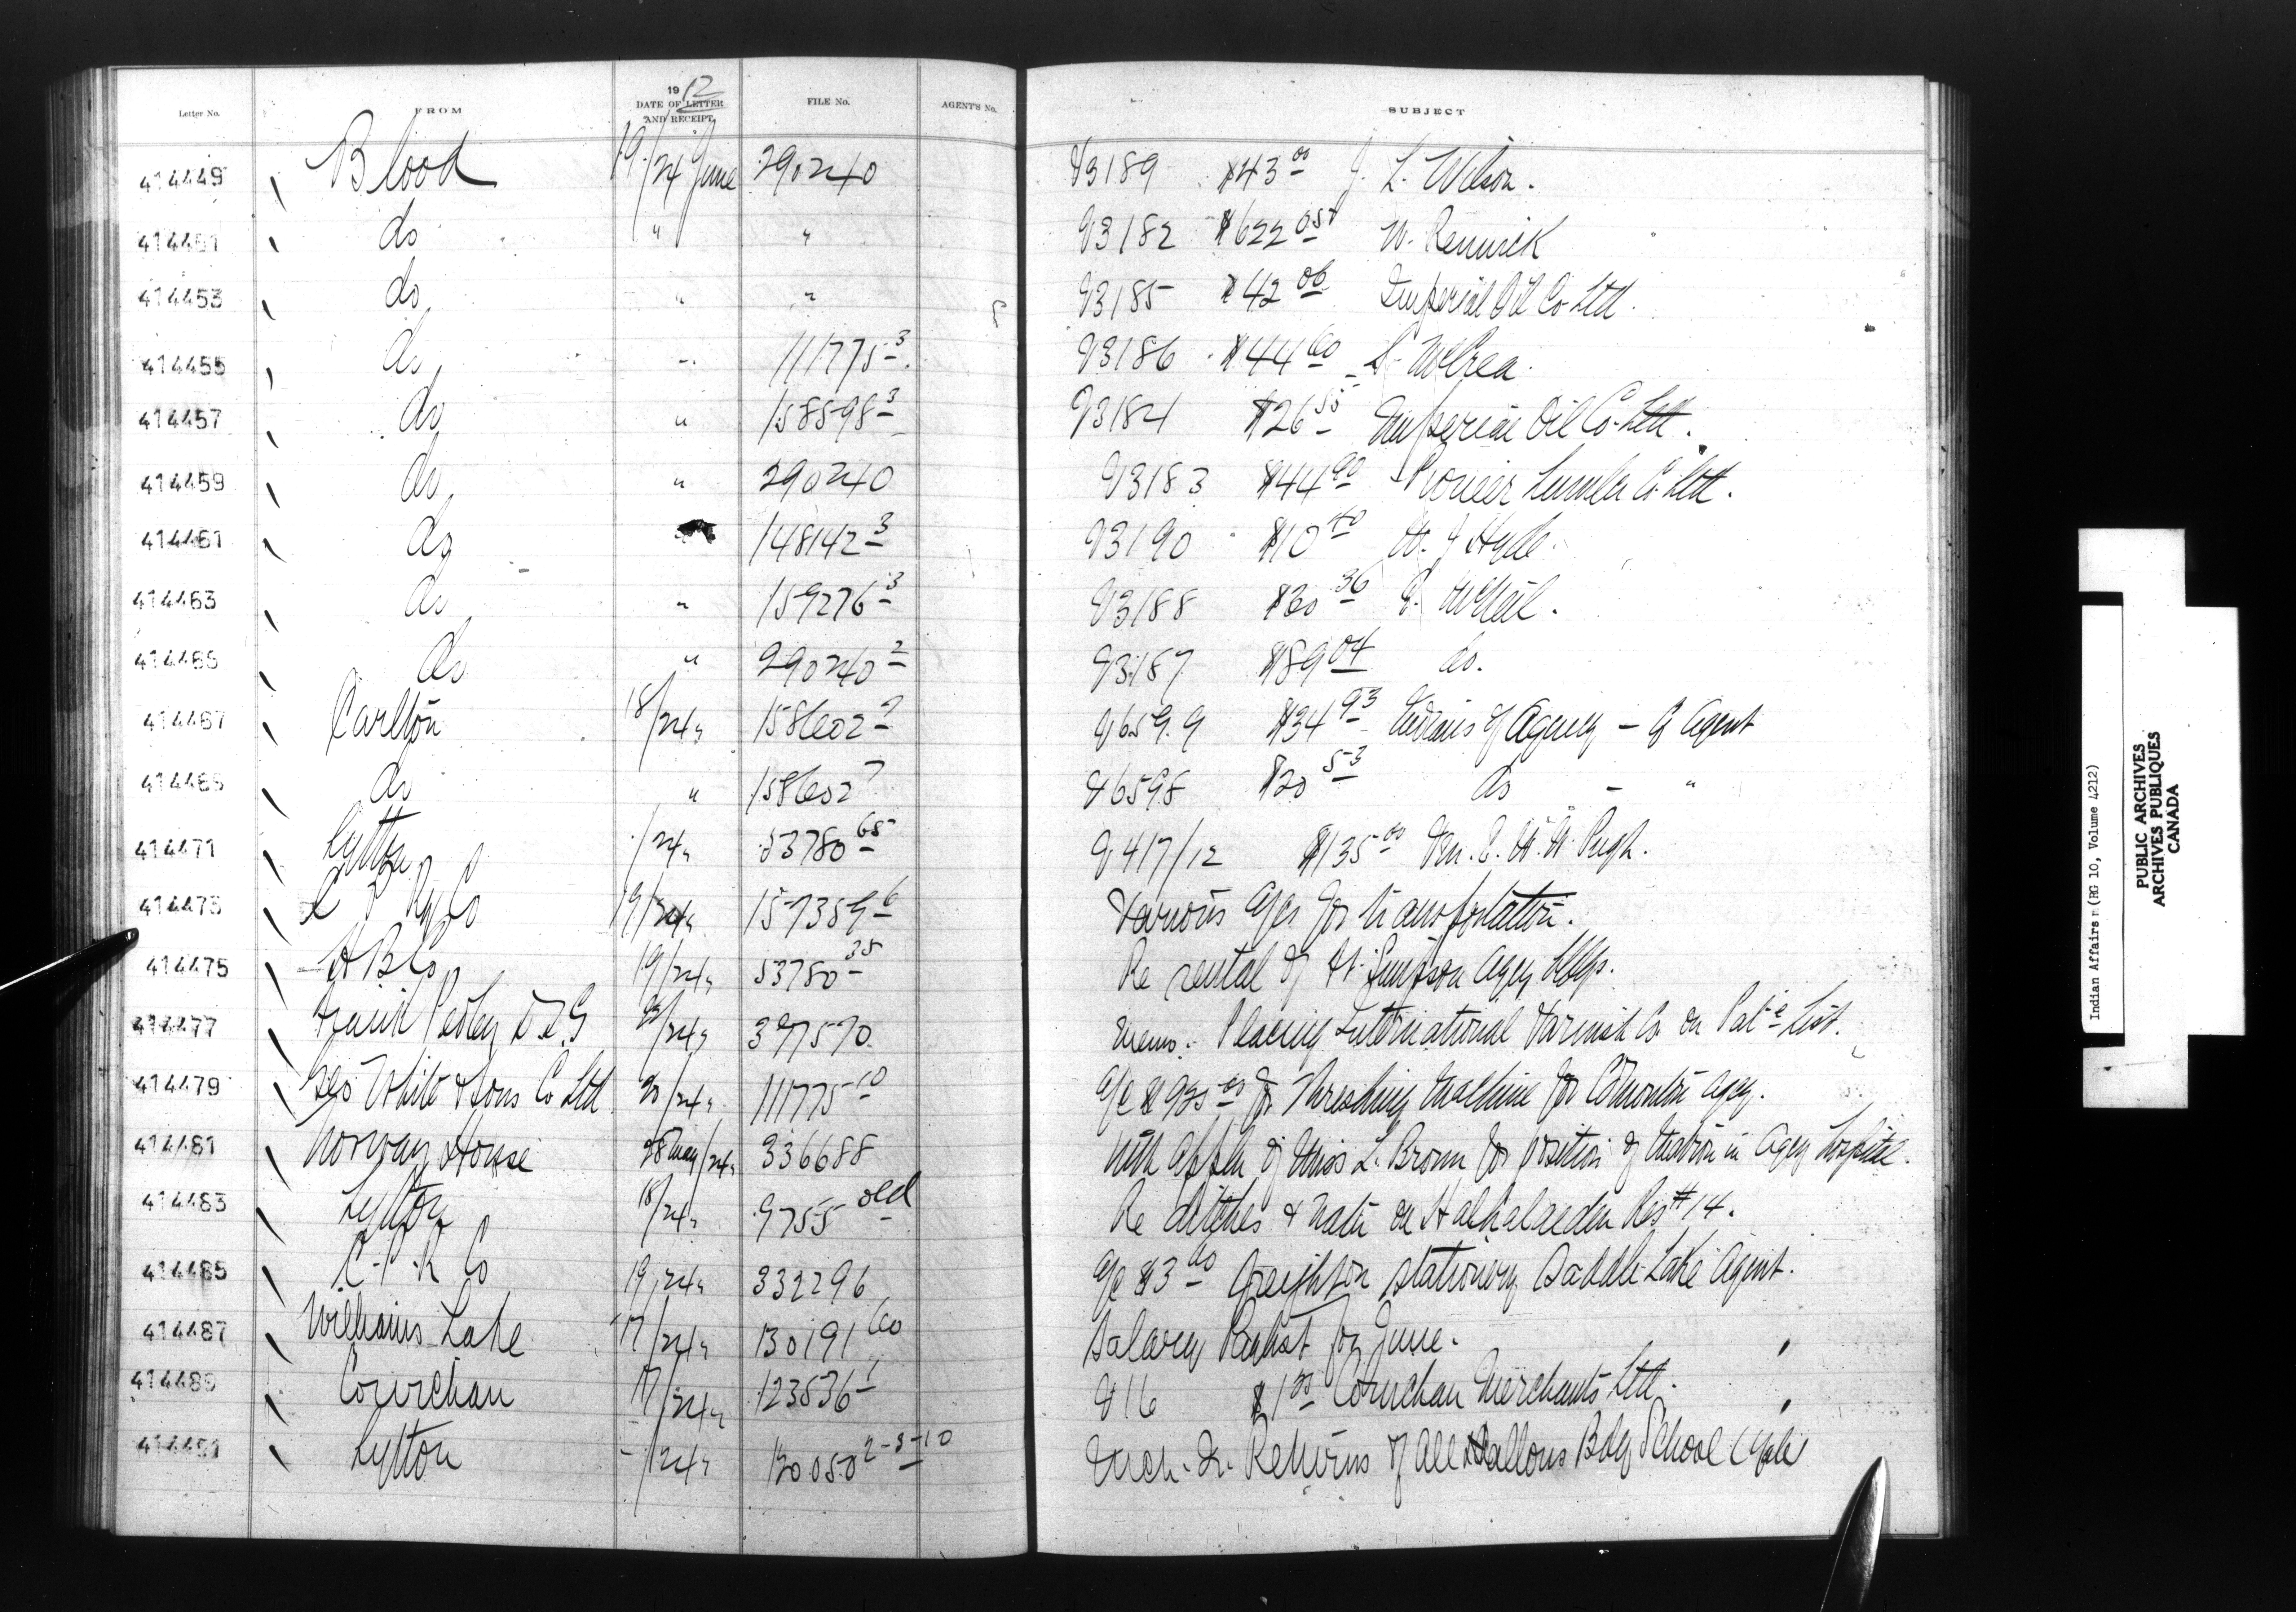 Letter No. FROM 1912 DATE OF LETTER AND RECEIPT. FILE No. AGENT'S No. SUBJECT
414449 Blood 19/24 June 290240 V3189 $43.00 J. L. Wilson.
414451 do " " V3182 $622.05 W. Renwick
414453 do " " V3185 $42.06 Imperial Oil Co Ltd.
414455 do " 111775-3 V3186 $44.60 McCrea.
414457 do " 158598-3 V3184 $26.55 Imperial Oil Co. Ltd.
414459 do " 290240 V3183 $44.90 Pioneer Lumber Co. Ltd.
414461 do 148142-3 V3190 $10.40 Hyde.
414463 do " 159276-3 V3188 $30.36 E. McNeil.
414465 do " 290240-2 V3187 $89.04 do.
414467 Carlton 18/24 " V6599 $34.93 Indians of Agency - Agent
414469 do " V6598 $20.53 do - "
414471 Lytton /24 " 53780-65 V417/12 $135.00 Ven. E. W. W. Pugh.
414473 C P Ry Co 19/24 " 157389-6 Various a/cs for transportation.
414475 H B Co 19/24 " 53780-35 Re rental of Ft. Simpson Agcy bldgs.
414477 Frank Pedley D.S.G /24 " Memo. Placing International Varnish Co on Pat-e List.
414479 Geo White & Sons Co Ltd 20/24 " 111775-10 a/c $925.00 for Threshing Machine for Edmonton Agcy.
414481 Norway House 28 May/24 " 336688 With appln of Miss L. Brown for position of Matron in Agcy hospital.
414483 Lytton 18/24 " 9755 old Re ditches & water on Res #14.
414485 C. P. R Co 19/24 " 332296 a/c $3.60 freight on stationery Saddle Lake Agent.
414487 Williams Lake 17/24 " 130191-60 Salary for June.
414489 Cowichan 17/24 " 123536-1 V16 Cowichan Merchants Ltd.
414491 Lytton - /24 " 2-8-10 Returns of All Hallows Bdg School (Yale
Indian Affairs (RG 10, Volume 4212)
PUBLIC ARCHIVES
ARCHIVES PUBLIQUES
CANADA